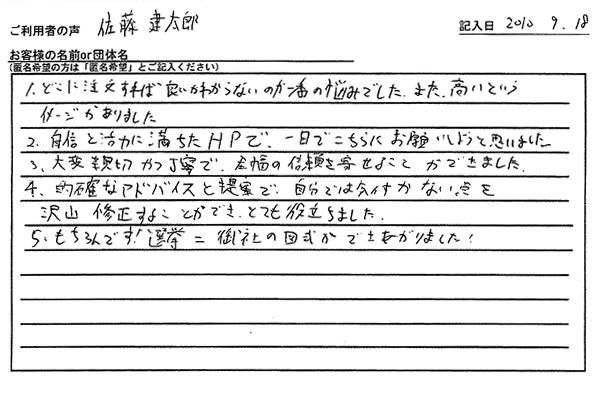 ご利用者の声 佐藤 建太郎 記入日 2010 9.18
お客様の名前or団体名
(匿名希望の方は「匿名希望」とご記入ください)
1. どこに注文すれば良いかわからないのが一番の悩みでした。また、高いという
イメージがありました
2. 自信と活力に満ちたHPで、一目でこちらにお願いしようと思いました
3、大変親切かつ丁寧で、全幅の信頼を寄せることができました。
4、的確なアドバイスと提案で、自分では気付かない点を
沢山 修正することができ、とても役立ちました。
5、もちろんです!選挙=御社の図式ができあがりました!